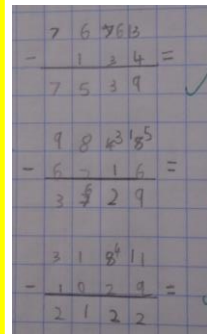 7 6 7 6 13
- 1 3 4 =
7 5 3 9
9 8 4 3 1 8 5
- 6 1 6 =
3 2 9
3 1 8 11
- 1 0 2 9 =
2 1 2 2